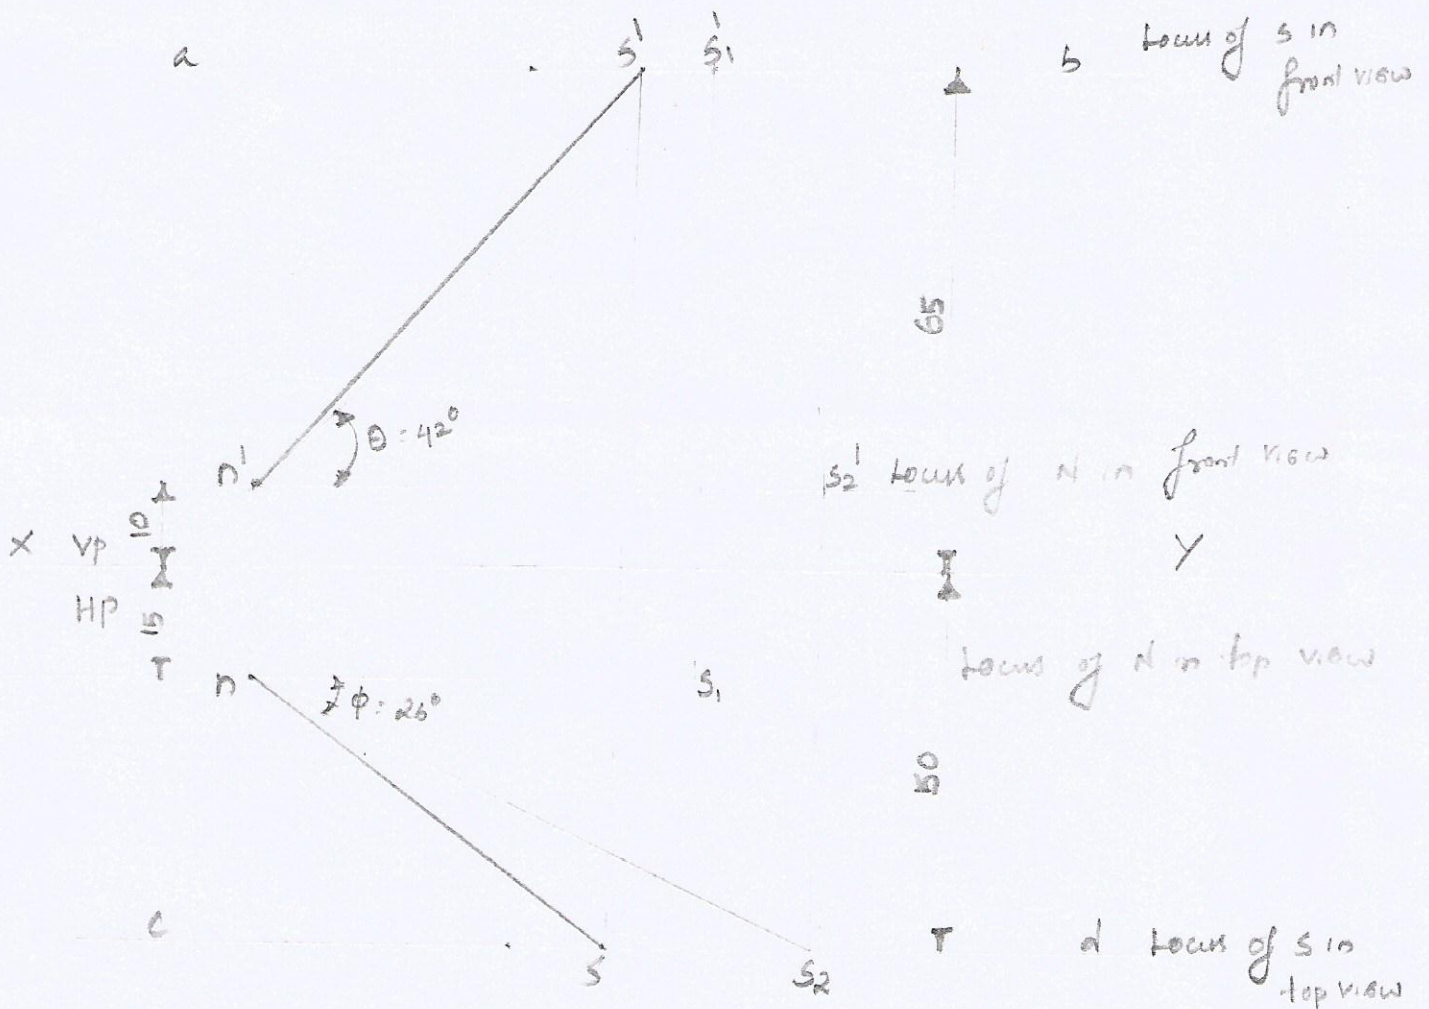 a s' s'₁ b Locus of s in
front view
65
θ = 42°
n' s₂' Locus of N in front view
10
X VP Y
HP
15
Locus of N in top view
n φ = 26° s₁
50
c d Locus of s in
s s₂ top view